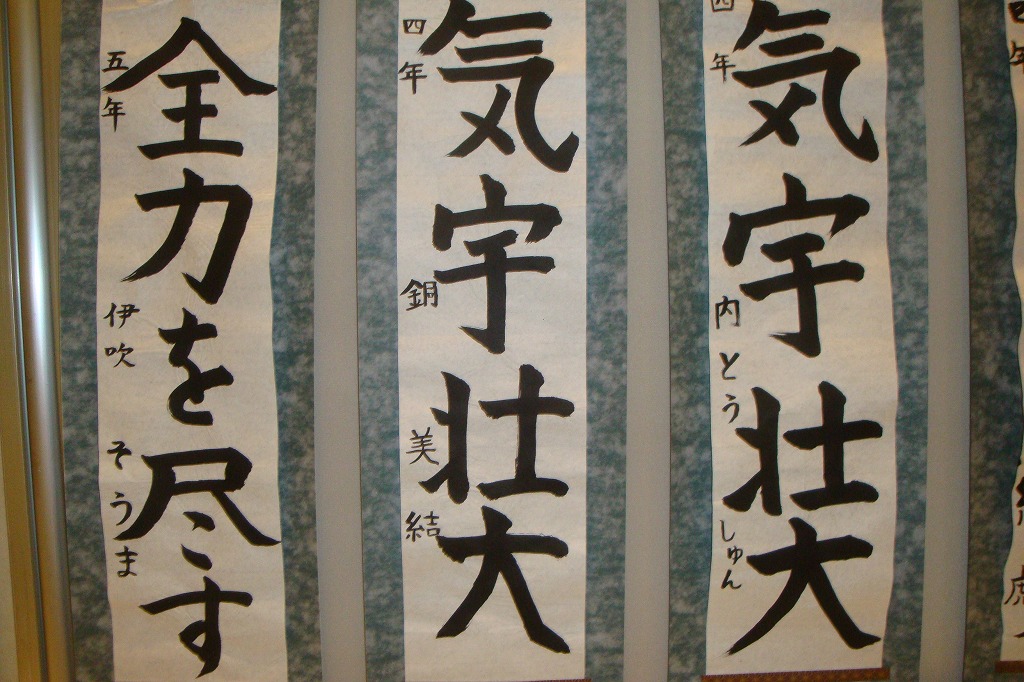 四年
気宇壮大
内とう しゅん
四年
気宇壮大
銅 美結
五年
全力を尽す
伊吹 そうま